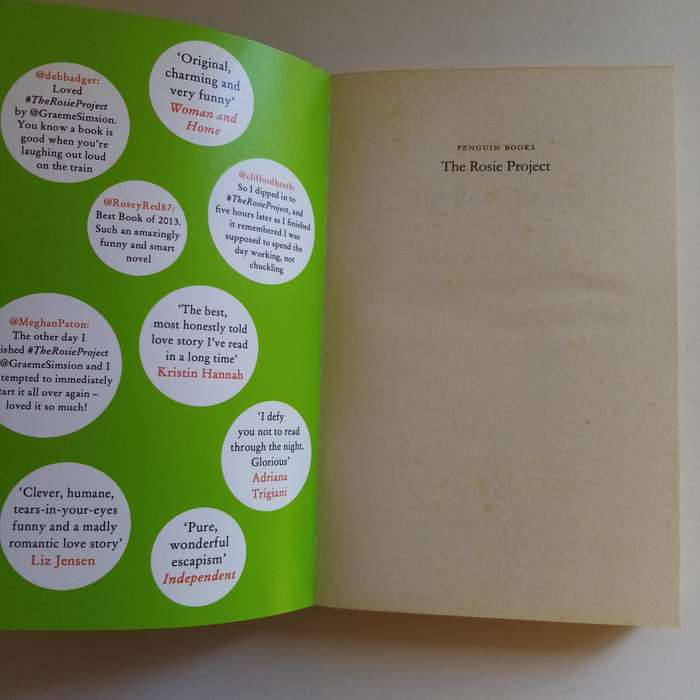 @debbadger:
Loved
#TheRosieProject
by @GraemeSimsion.
You know a book is
good when you're
laughing out loud
on the train
'Original,
charming and
very funny'
Woman and
Home
@RoseyRed87:
Best Book of 2013.
Such an amazingly
funny and smart
novel
@cliffordheath:
So I dipped in to
#TheRosieProject, and
five hours later as I finished
it remembered I was
supposed to spend the
day working, not
chuckling
@MeghanPaton:
The other day I
#TheRosieProject
@GraemeSimsion and I
tempted to immediately
it all over again –
loved it so much!
'The best,
most honestly told
love story I've read
in a long time'
Kristin Hannah
'I defy
you not to read
through the night.
Glorious'
Adriana
Trigiani
'Clever, humane,
tears-in-your-eyes
funny and a madly
romantic love story'
Liz Jensen
'Pure,
wonderful
escapism'
Independent
PENGUIN BOOKS
The Rosie Project